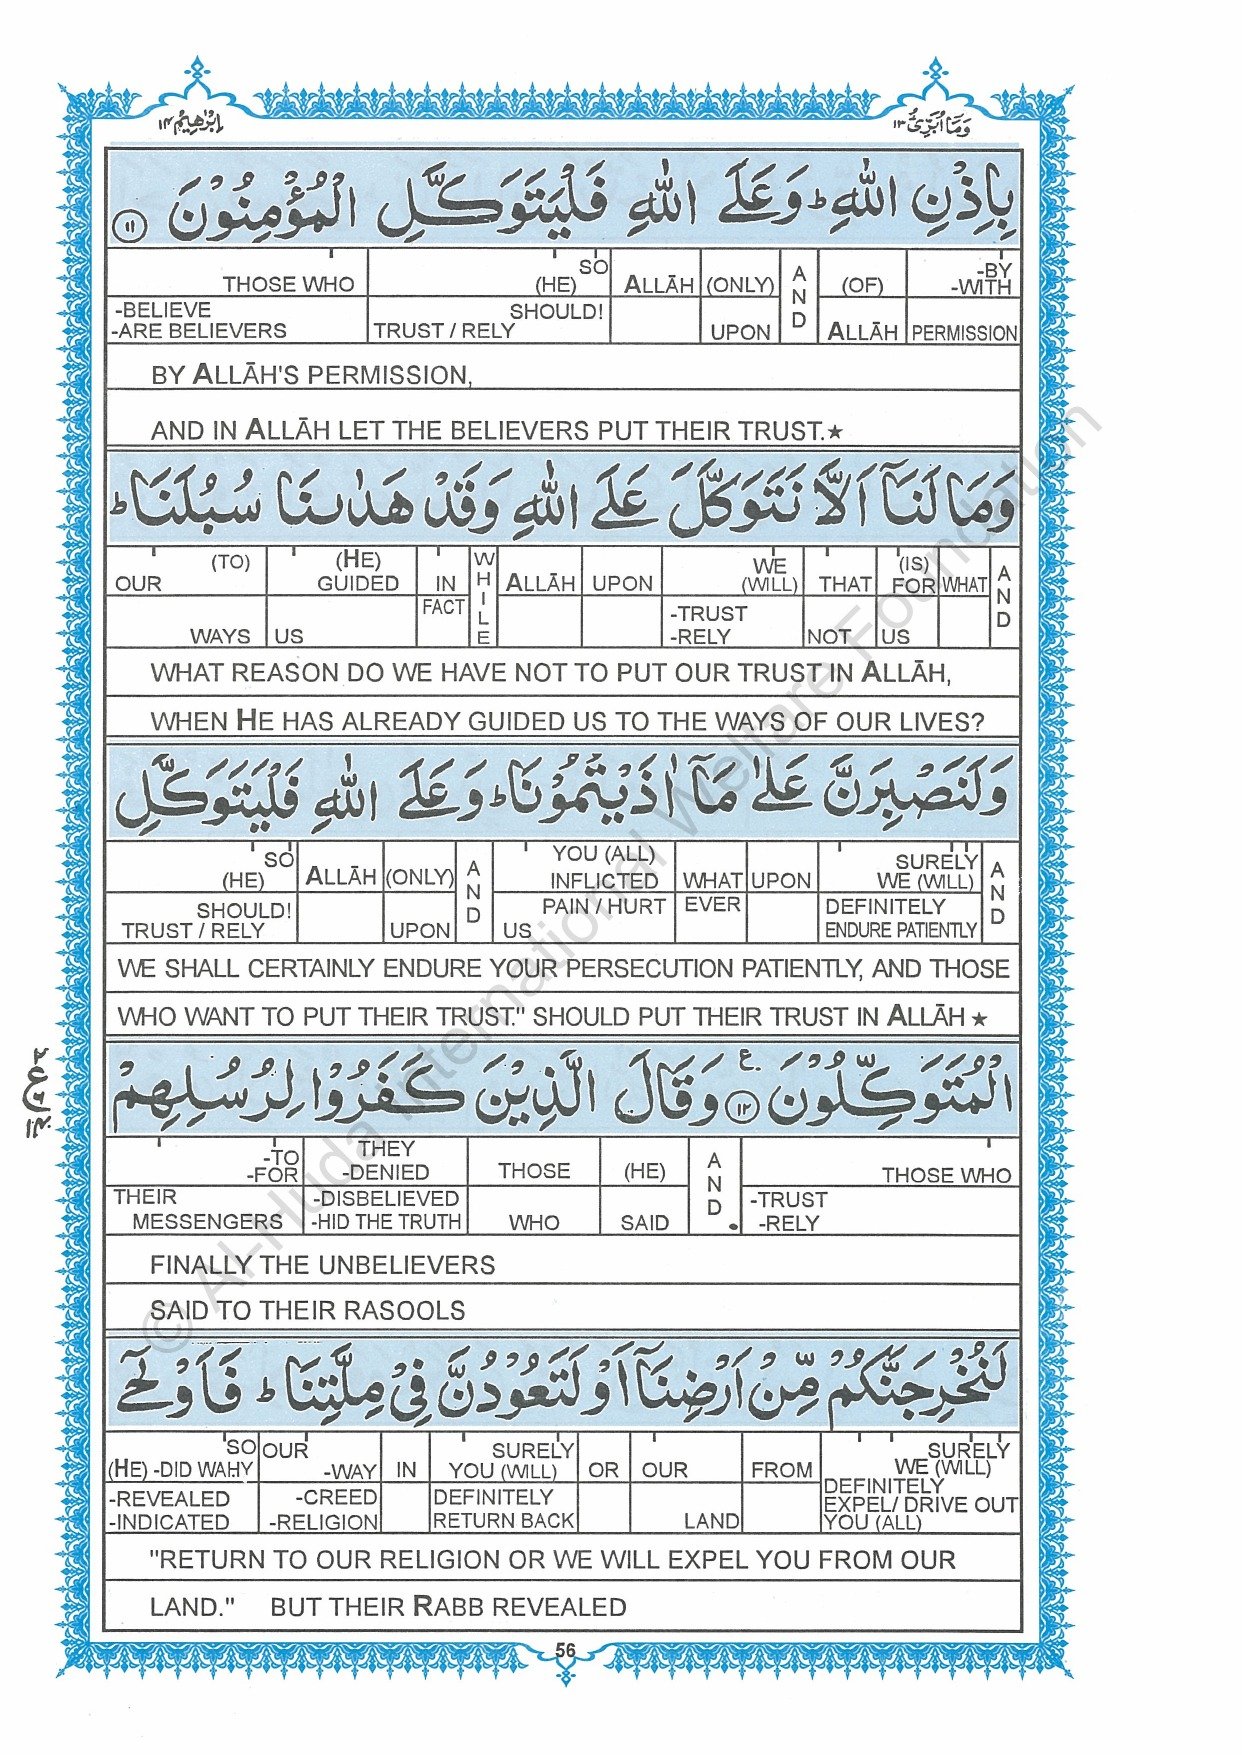 اِبْرٰهِيْمُ ١٤
وَمَآ اُبَرِّئُ ١٣
بِاِذْنِ اللّٰهِ ؕ وَعَلَى اللّٰهِ فَلْيَتَوَكَّلِ الْمُؤْمِنُوْنَ ١١
THOSE WHO SO (HE) ALLĀH (ONLY) AND (OF) -BY -WITH
-BELIEVE -ARE BELIEVERS SHOULD! TRUST / RELY UPON ALLĀH PERMISSION
BY ALLĀH'S PERMISSION,
AND IN ALLĀH LET THE BELIEVERS PUT THEIR TRUST.★
وَمَا لَنَآ اَلَّا نَتَوَكَّلَ عَلَى اللّٰهِ وَقَدْ هَدٰىنَا سُبُلَنَا ؕ
OUR (TO) (HE) GUIDED IN WHILE ALLĀH UPON WE (WILL) THAT (IS) FOR WHAT AND
WAYS US FACT -TRUST -RELY NOT US
WHAT REASON DO WE HAVE NOT TO PUT OUR TRUST IN ALLĀH,
WHEN HE HAS ALREADY GUIDED US TO THE WAYS OF OUR LIVES?
وَلَنَصْبِرَنَّ عَلٰى مَآ اٰذَيْتُمُوْنَا ؕ وَعَلَى اللّٰهِ فَلْيَتَوَكَّلِ
SO (HE) ALLĀH (ONLY) AND YOU (ALL) INFLICTED WHAT UPON SURELY WE (WILL) AND
SHOULD! TRUST / RELY UPON US PAIN / HURT EVER DEFINITELY ENDURE PATIENTLY
WE SHALL CERTAINLY ENDURE YOUR PERSECUTION PATIENTLY, AND THOSE
WHO WANT TO PUT THEIR TRUST." SHOULD PUT THEIR TRUST IN ALLĀH ★
الْمُتَوَكِّلُوْنَ ١٢ ع وَقَالَ الَّذِيْنَ كَفَرُوْا لِرُسُلِهِمْ
-TO -FOR THEY -DENIED THOSE (HE) AND THOSE WHO
THEIR MESSENGERS -DISBELIEVED -HID THE TRUTH WHO SAID -TRUST -RELY
FINALLY THE UNBELIEVERS
SAID TO THEIR RASOOLS
لَنُخْرِجَنَّكُمْ مِّنْ اَرْضِنَآ اَوْ لَتَعُوْدُنَّ فِيْ مِلَّتِنَا ؕ فَاَوْحٰٓى
SO (HE) -DID WAHY OUR -WAY IN SURELY YOU (WILL) OR OUR FROM SURELY WE (WILL)
-REVEALED -INDICATED -CREED -RELIGION DEFINITELY RETURN BACK LAND DEFINITELY EXPEL/ DRIVE OUT YOU (ALL)
"RETURN TO OUR RELIGION OR WE WILL EXPEL YOU FROM OUR
LAND." BUT THEIR RABB REVEALED
56
© Al-Huda International Welfare Foundation